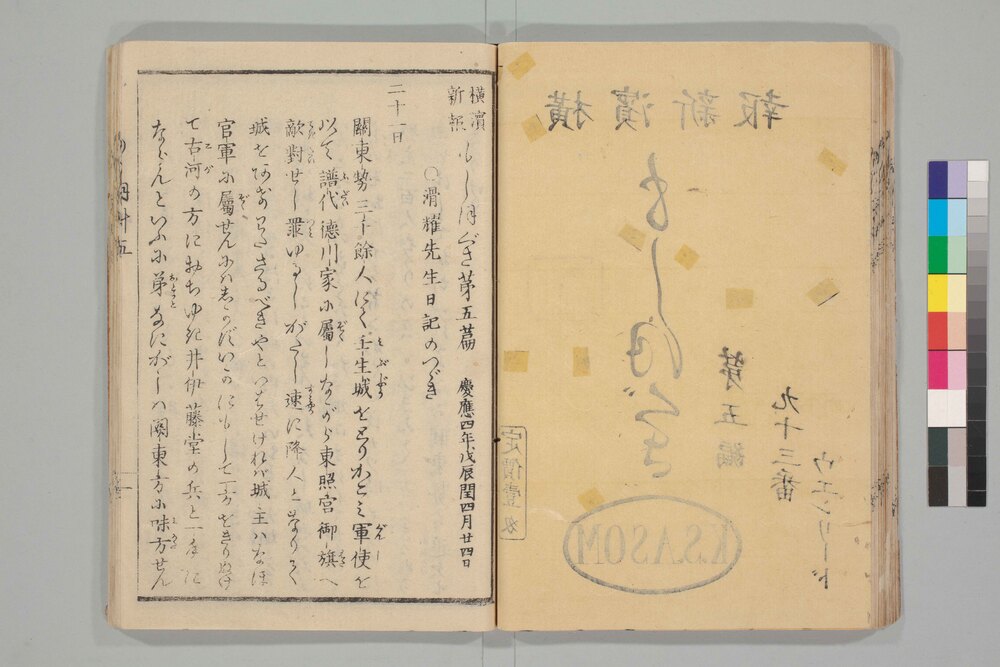 横濱新報
もしほぐさ
第五編
九十三番
ウエンリード
定價壹匁
横濱新報 もしほぐさ第五篇 慶應四年戊辰閏四月廿四日
〇滑耀先生日記のつゞき
二十一日
關東勢三千餘人にて壬生城をとりかこミ軍使を
以て譜代德川家に屬しながら東照宮御旗へ
敵對せし罪ゆるしがたし速に降人となりて
城をあけわたさるべきやといはせければ城主ハなほ
官軍に屬せんにハしかずいかにもして一方をきりぬけ
て古河の方におちゆき井伊藤堂の兵と一手に
ならんといふに弟なにがしハ關東方に味方せん